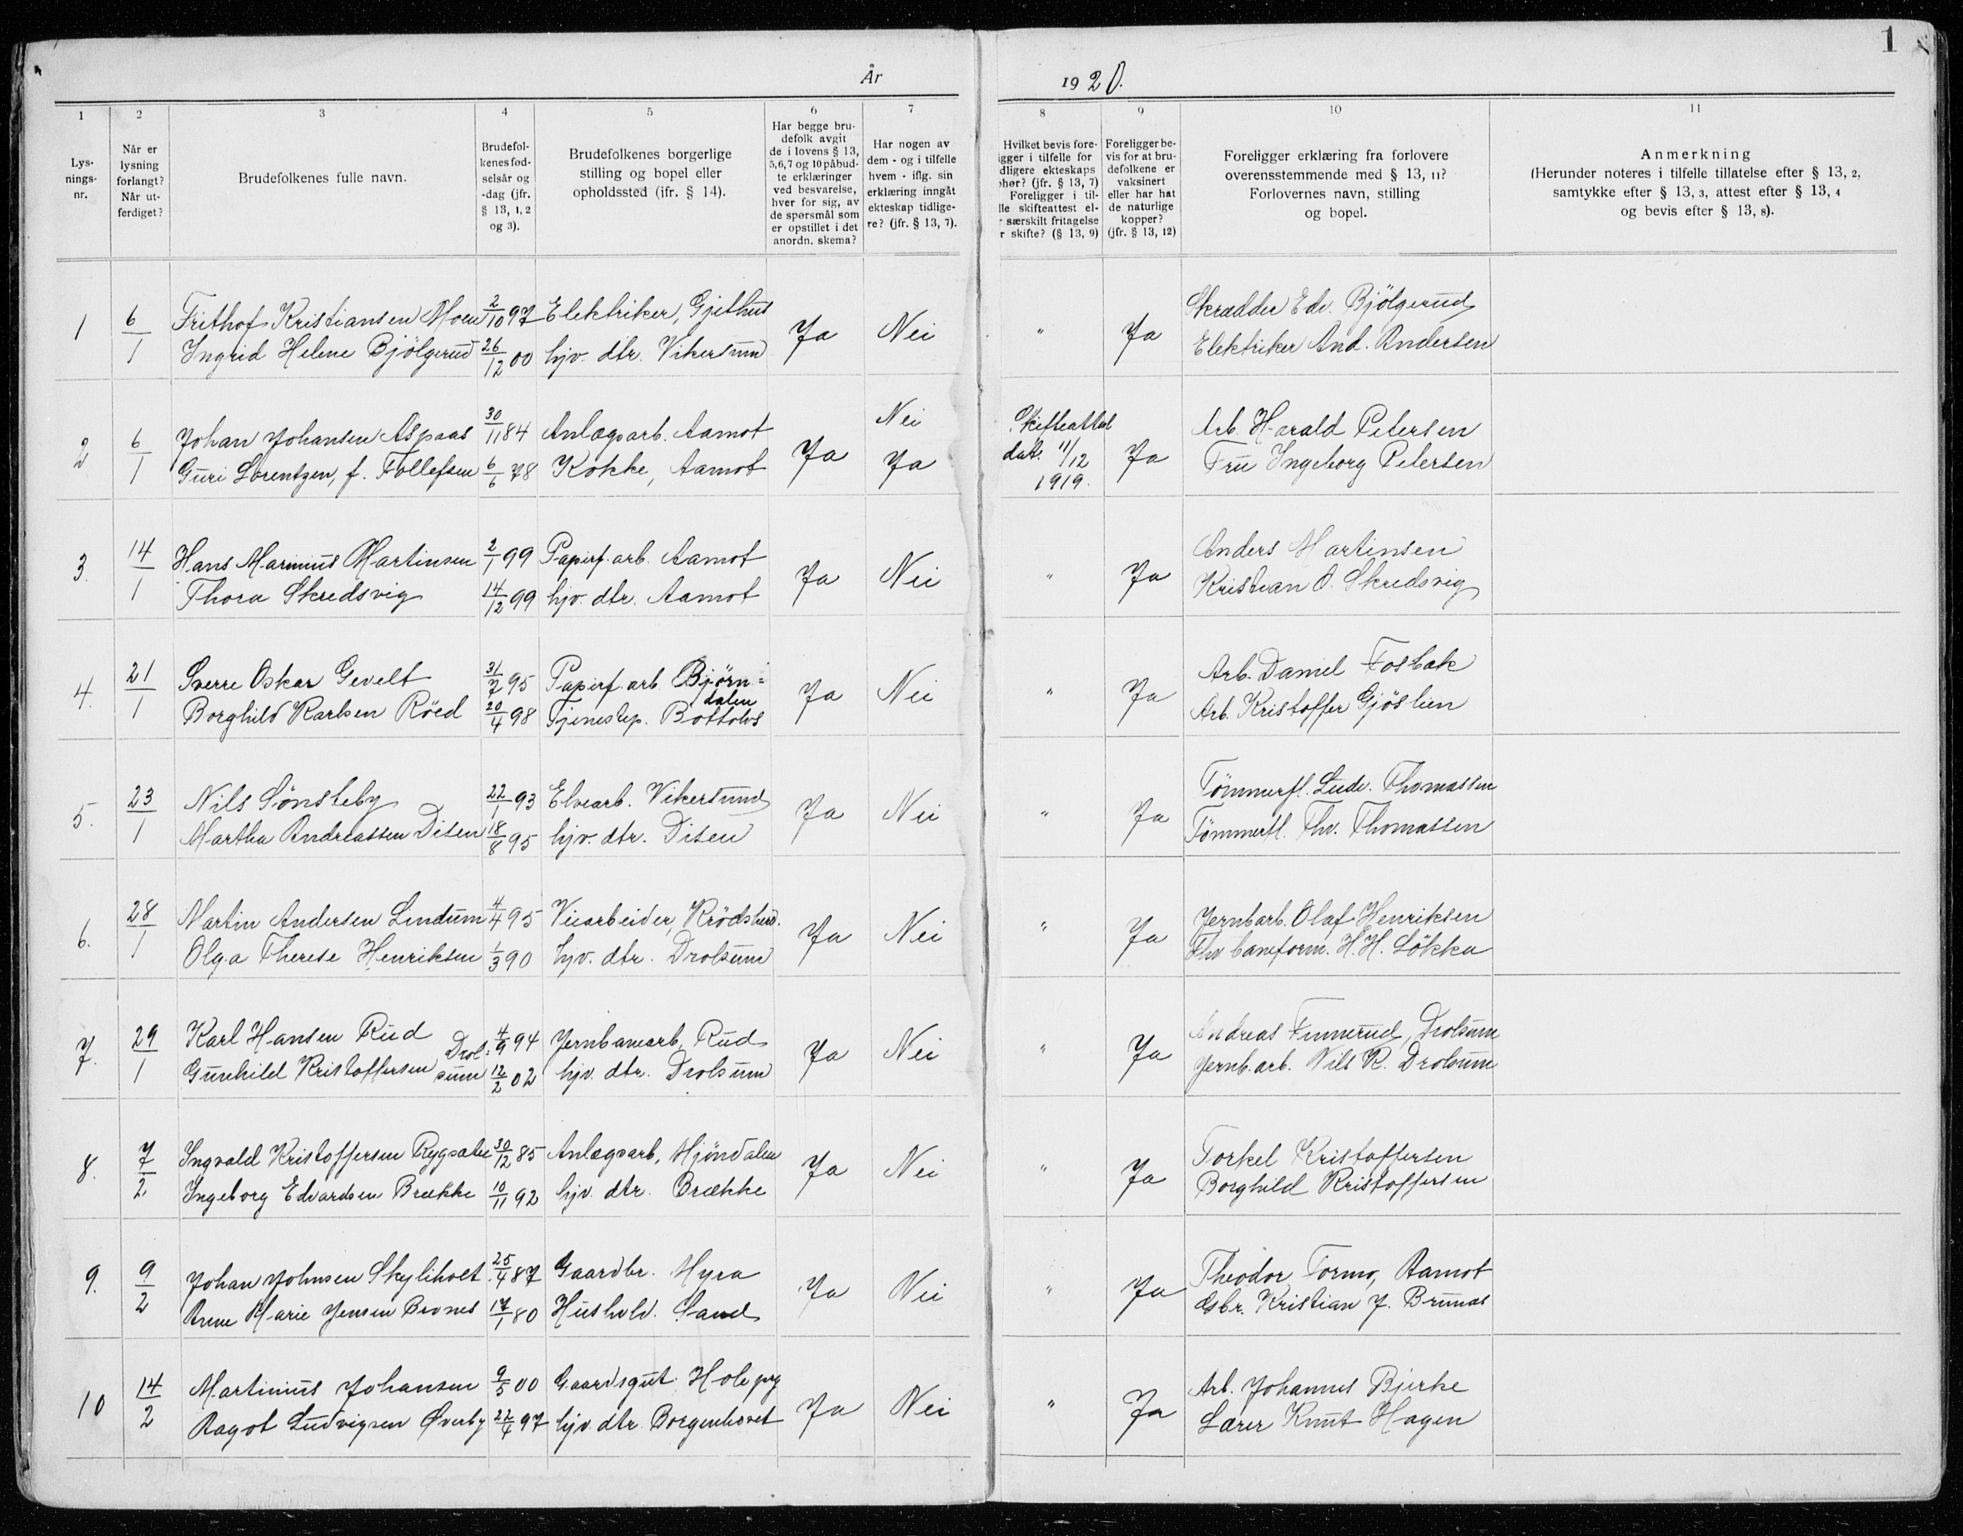 1
År 1920.
1 2 3 4 5 6 7 8 9 10 11
Lys-
nings-
nr.
Når er
lysning
forlangt?
Når ut-
ferdiget?
Brudefolkenes fulle navn.
Brudefol-
kenes fød-
selsår og
-dag (jfr.
§ 13, 1, 2
og 3).
Brudefolkenes borgerlige
stilling og bopel eller
opholdssted (ifr. § 14).
Har begge bru-
defolk avgit
de i lovens § 13,
5,6,7 og 10 påbud-
te erklæringer
ved besvarelse,
hver for sig, av
de spørsmål som
er opstillet i det
anordn. skema?
Har nogen av
dem - og i tilfelle
hvem - iflg. sin
erklæring inngått
ekteskap tidlige-
re? (jfr. § 13, 7).
Hvilket bevis fore-
igger i tilfelle for
dligere ekteskaps
phør? (jfr. § 13, 7)
Foreligger i til-
lle skifteattest el-
r særskilt fritagelse
r skifte? (§ 13, 9)
Foreligger be-
vis for at bru-
defolkene er
vaksinert
eller har hat
de naturlige
kopper?
(jfr. § 13, 12)
Foreligger erklæring fra forlovere
overensstemmende med § 13, 11?
Forlovernes navn, stilling
og bopel.
Anmerkning
(Herunder noteres i tilfelle tillatelse efter § 13, 2,
samtykke efter § 13, 3, attest efter § 13, 4
og bevis efter § 13, 8).
1 6/1 Frithof Kristiansen Moen 2/10 97 Elektriker, Gjethus Ja Nei " Ja Skrædder Edv. Bjölgerud
Ingrid Helene Bjölgerud 26/12 00 hjv. dtr. Vikersund Elektriker And. Andersen
2 6/1 Johan Johansen Aspaas 30/11 84 Anlægsarb. Aamot Ja Nei Skifteattest Ja Arb. Harald Petersen
Guri Lorentzen, f. Tollefsen 6/6 78 Kokke, Aamot Ja dat. 11/12 Fru Ingeborg Petersen
1919.
3. 14/1 Hans Marinius Martinsen 2/1 99 Papirf. arb. Aamot Ja Nei " Ja Anders Martinsen
Thora Skredsvig 14/12 99 hjv. dtr. Aamot Kristian O. Skredsvig
4. 21/1 Sverre Oskar Gevelt 31/7 95 Papirf. arb. Björn= Ja Nei " Ja Arb. Daniel Fosbak
dalen
Borghild Karlsen Röed 20/4 98 Tjenestep. Bottolvs Arb. Kristoffer Gjöslien
5. 23/1 Nils Sönsteby 22/1 93 Elvearb. Vikersund Ja Nei " Ja Tömmerfl. Ludv. Thomassen
Martha Andreassen Disen 18/8 95 hjv. dtr. Disen Tömmerfl. Thv. Thomassen
6. 28/1 Martin Andersen Lindum 4/4 95 Veiarbeider, Krödsher. Ja Nei " Ja Jernb.arb. Olaf Henriksen
Olga Therese Henriksen 1/3 90 hjv. dtr. Drolsum baneform. H.H. Lökka
7. 29/1 Karl Hansen Rud 4/9 94 Jernbanearb. Rud Ja Nei " Ja Andreas Finnerud, Drolsum
Gunhild Kristoffersen Drol=sum 12/2 02 hjv. dtr. Drolsum Jernb. arb. Nils K. Drolsum
8. 7/2 Ingvald Kristoffersen 30/12 85 Anlægsarb, Mjöndalen Ja Nei " Ja Torkel Kristoffersen
Ingeborg Edvardsen Brække 10/11 92 hjv. dtr. Brække Borghild Kristoffersen
9. 9/2 Johan Johnsen 25/4 87 Gaardbr. Myra Ja Nei " Ja Theodor Formo, Aamot
Anne Marie Jensen 17/1 80 Hushold. Sand Gbr. Kristian J.
10 14/2 Martinius Johansen 9/5 00 Gaardsgut. Hole pg Ja Nei " Ja Arb. Johannes Bjerke
Ragot Ludvigsen Överby 22/4 97 hjv. dtr. Borgenhovet Lærer Knut Hagen